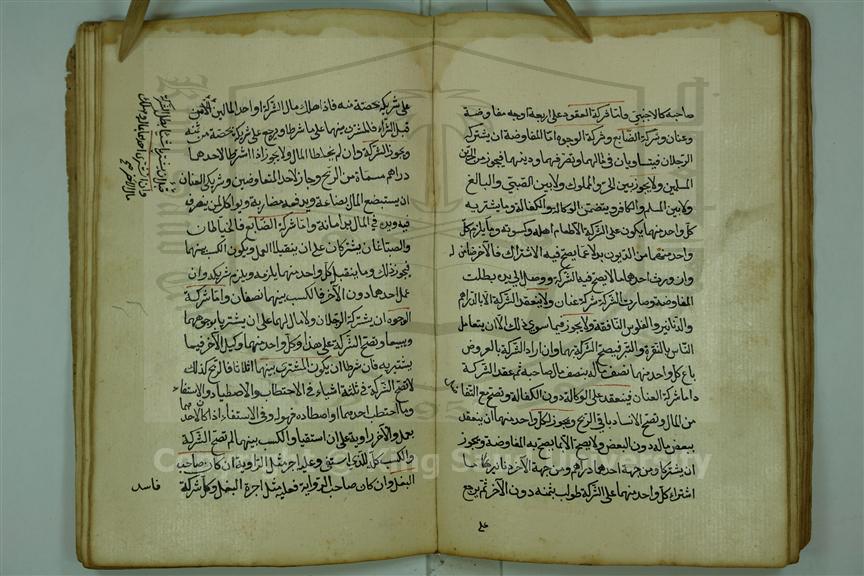 صاحبه كالاجنبي واما شركة العقود على اربعة اوجه مفاوضة
وعنان وشركة الصنايع وشركة الوجوه اما المفاوضة ان يشترك
الرجلان فيتساويان في مالهما وتصرفهما ودينهما فيجوز من الحرين
المسلمين ولا يجوز بين الحر والمملوك ولا بين الصبي والبالغ
ولا بين المسلم والكافر ويتضمن الوكالة والكفالة وما يشتريه
كل واحد منهما يكون على الشركة الا طعام اهله وكسوته وما يلزم كل
واحد منهما من الديون بدلا عما يصح فيه الاشتراك فالآخر ضامن له
وان ورث احدهما مالا يصح فيه الشركة ووصل الى يده بطلت
المفاوضة وصارت الشركة شركة عنان ولا ينعقد الشركة الا بالدراهم
والدنانير والفلوس النافقة ولا يجوز فيما سوى ذلك الا ان يتعامل
الناس بالنقرة والتبر فيصح الشركة بهما وان اراد الشركة بالعروض
باع كل واحد منهما نصف ماله بنصف مال صاحبه ثم عقد الشركة
واما شركة العنان فينعقد على الوكالة دون الكفالة ويصح مع التفاضل
من المال ويصح الانساد بافي الربح ويجوز لكل واحد منهما ان ينعقد
ببعض ماله دون البعض ولا يصح الا بما يصح به المفاوضة ويجوز
ان يشتركا ومن جهة احدهما دراهم ومن جهة الآخر دنانير وما
اشتراه كل واحد منهما على الشركة طولب بثمنه دون الآخر ثم يرجع
على
على شريكه بحصته منه فاذا هلك مال الشركة او احد المالين
قبل الشراء فالمشترى بينهما على ما شرطا ويرجع على شريكه بحصته من ثمنه
ويجوز الشركة وان لم يخلطا المال ولا يجوز اذا اشرط لاحدهما
دراهم مسماة من الربح وجاز لاحد المتفاوضين وشريكي العنان
ان يستبضع المال بضاعة ويدفعه مضاربة ويوكل من يتصرف
فيه ويده في المال يد امانة واما شركة الصنايع فالخياطان
والصباغان يشتركان على ان يتقبلا العمل ويكون الكسب بينهما
فيجوز ذلك وما يتقبل كل واحد منهما يلزمه ويلزم شريكه وان
عمل احدهما دون الآخر فالكسب بينهما نصفان واما شركة
الوجوه ان يشتركا الرجلان ولا مال لهما على ان يشتريا بوجوههما
ويبيعا وتصح الشركة على هذا وكل واحد منهما وكيل الآخر فيما
يشتريه فان شرطا ان يكون المشترى بينهما اثلاثا فالربح كذلك
لا تصح الشركة في ثلثة اشياء في الاحتطاب والاصطياد والاستقاء
وما احتطب احدهما او اصطاده فهو له وفي الاستقاء اذا كان لاحدهما
بغل وللآخر راوية على ان استقيا والكسب بينهما لم تصح الشركة
والكسب كله للذي استقى وعليه اجر مثل الراوية ان كان صاحب
البغل وان كان صاحب الراوية فعليه مثل اجرة البغل وكل شركة
فاسد